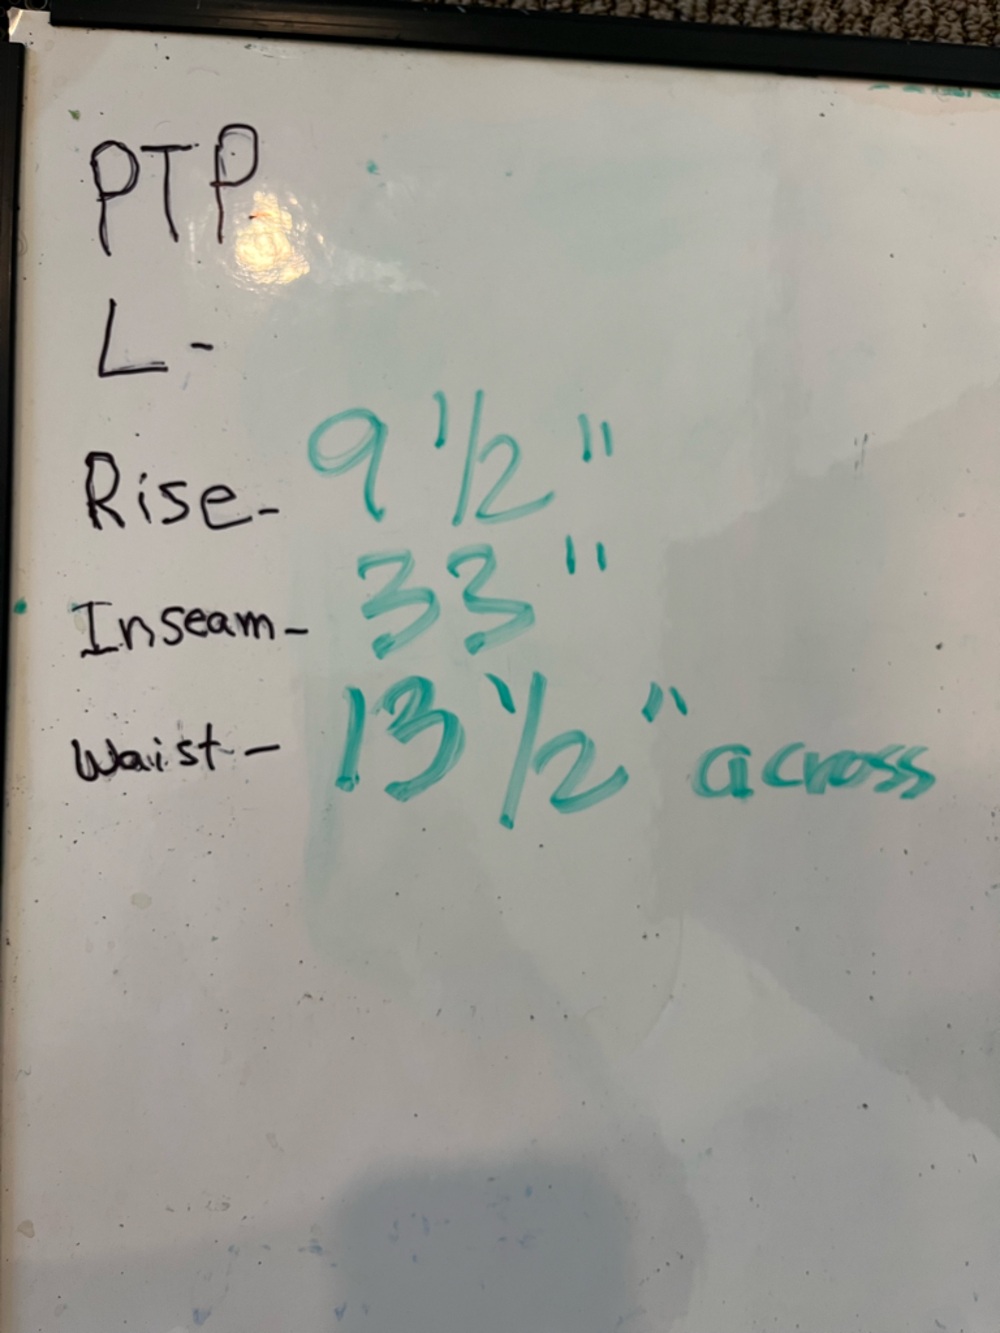 PTP
L -
Rise - 9 1/2"
Inseam - 33"
Waist - 13 1/2" across